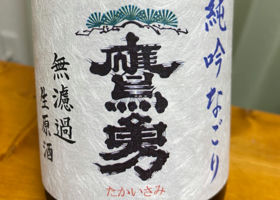 純吟なごり
鷹勇
無濾過
生原酒
たかいさみ